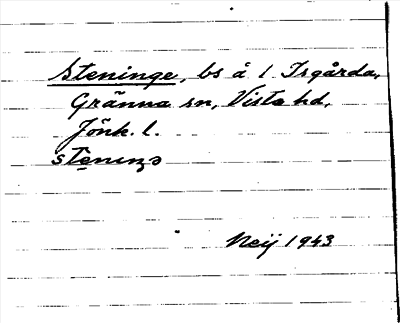 Steninge, bs å 1 Isgårda,
Gränna sn, Vista hd,
Jönk. l.

Neij 1943